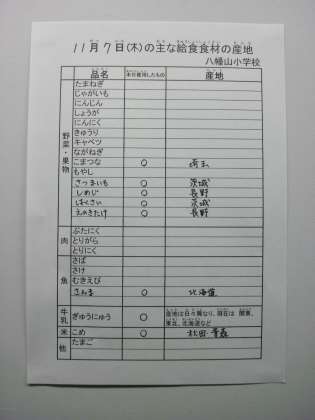 11月7日(木)の主な給食食材の産地
八幡山小学校
品名 本日使用したもの 産地
野菜・果物
たまねぎ
じゃがいも
にんじん
しょうが
にんにく
きゅうり
キャベツ
ながねぎ
こまつな ○ 埼玉
もやし
さつまいも ○ 茨城
しめじ ○ 長野
はくさい ○ 茨城
えのきたけ ○ 長野
肉
ぶたにく
とりがら
とりにく
魚
さば
さけ
むきえび
さんま ○ 北海道
牛乳 ぎゅうにゅう ○ 産地は日々異なり、現在は 関東、
東北、北海道など
米 こめ ○ 秋田・青森
他 たまご